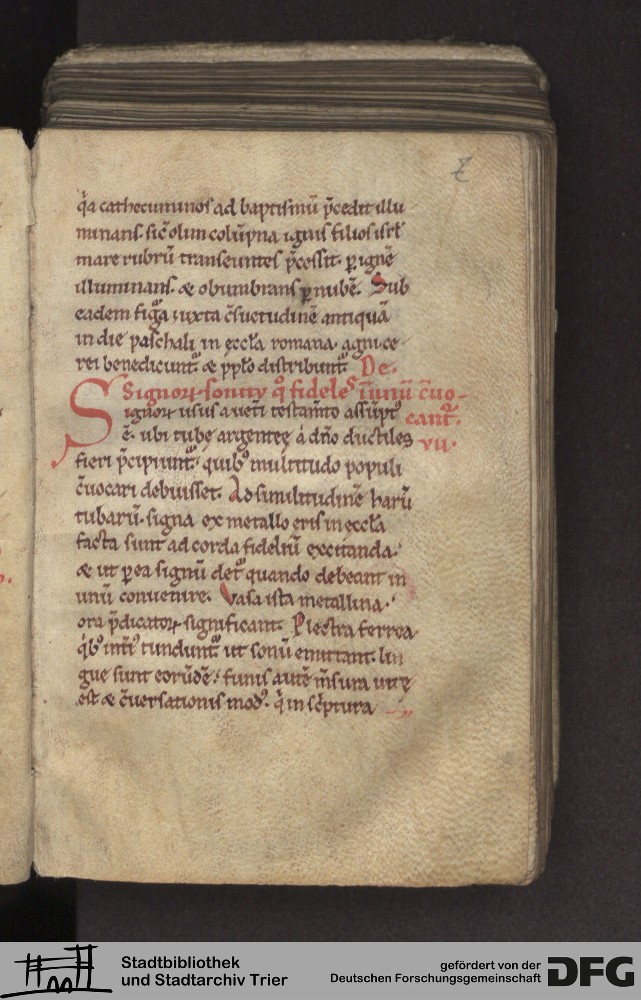 q̄a cathecuminos ad baptismū p̄cedit illu
minans. sic̄ olim colūpna ignis filios isrl̄
mare rubrū transeuntes p̄cessit. ꝑ ignē
illuminans. & obumbrans ꝑ nubē. Sub
eadem figᵃa iuxta c̄suetudinē antiquā
in die paschali in eccl̄a romana. agni ce
rei benedicunt᷑ & pp̄lo distribunt᷑. De
Signoꝝ sonitu q̊ fideles ī unū c̄uo-
cant᷑.
VII.
Signoꝝ usus a uet̄i testam̄to assūpt᷒
ē. ubi tubę argenteę a dn̄o ductiles
fieri p̄cipiunt᷑. quib᷒ multitudo populi
c̄uocari debuisset. Ad similitudinē harū
tubarū. signa ex metallo eris in eccl̄a
facta sunt ad corda fideliū excitanda.
& ut ꝑ ea signū det᷑ quando debeant in
unū conuenire. Vasa ista metallina.
ora p̄dicatoꝝ significant. Plectra ferrea
q̄b᷒ int᷒ tundunt᷑ ut sonū emittant. lin
gue sunt eorūdē. funis autē m̄sura uitę
est & c̄uersationis mod᷒. q̄ in sc̄ptura
Stadtbibliothek
und Stadtarchiv Trier
gefördert von der
Deutschen Forschungsgemeinschaft
DFG